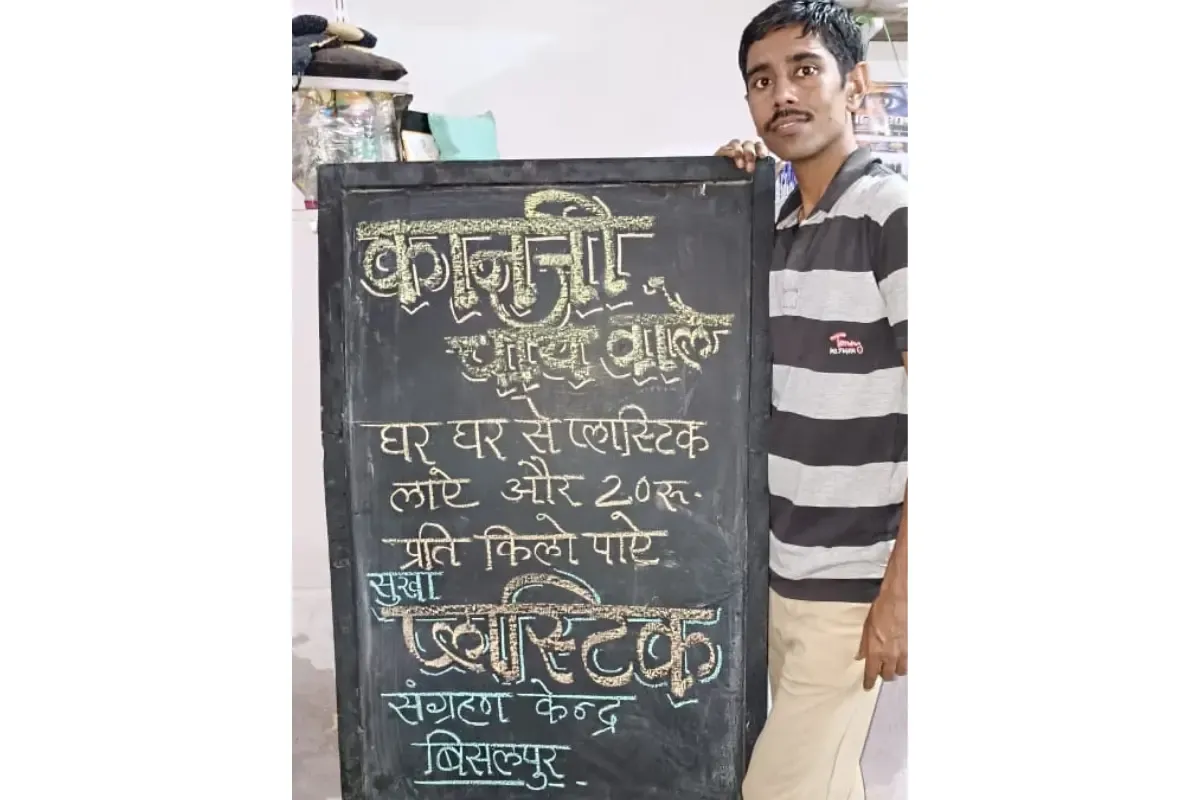 कानजी
चाय वाले
घर घर से प्लास्टिक
लाऐ और 20रु.
प्रति किलो पाऐ
सुखा
प्लास्टिक
संग्रहण केन्द्र
बिसलपुर
Tommy